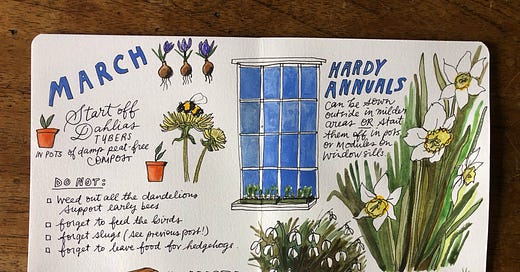 MARCH
Start off
Dahlias
TUBERS
IN POTS of damp peat-free
COMPOST
DO NOT:
weed out all the dandelions
support early bees
forget to feed the birds
forget slugs (see previous post!)
forget to leave food for hedgehogs
HARDY
ANNUALS
can be sown
outside in milder
areas OR start
them off in pots
or modules on
window sills.